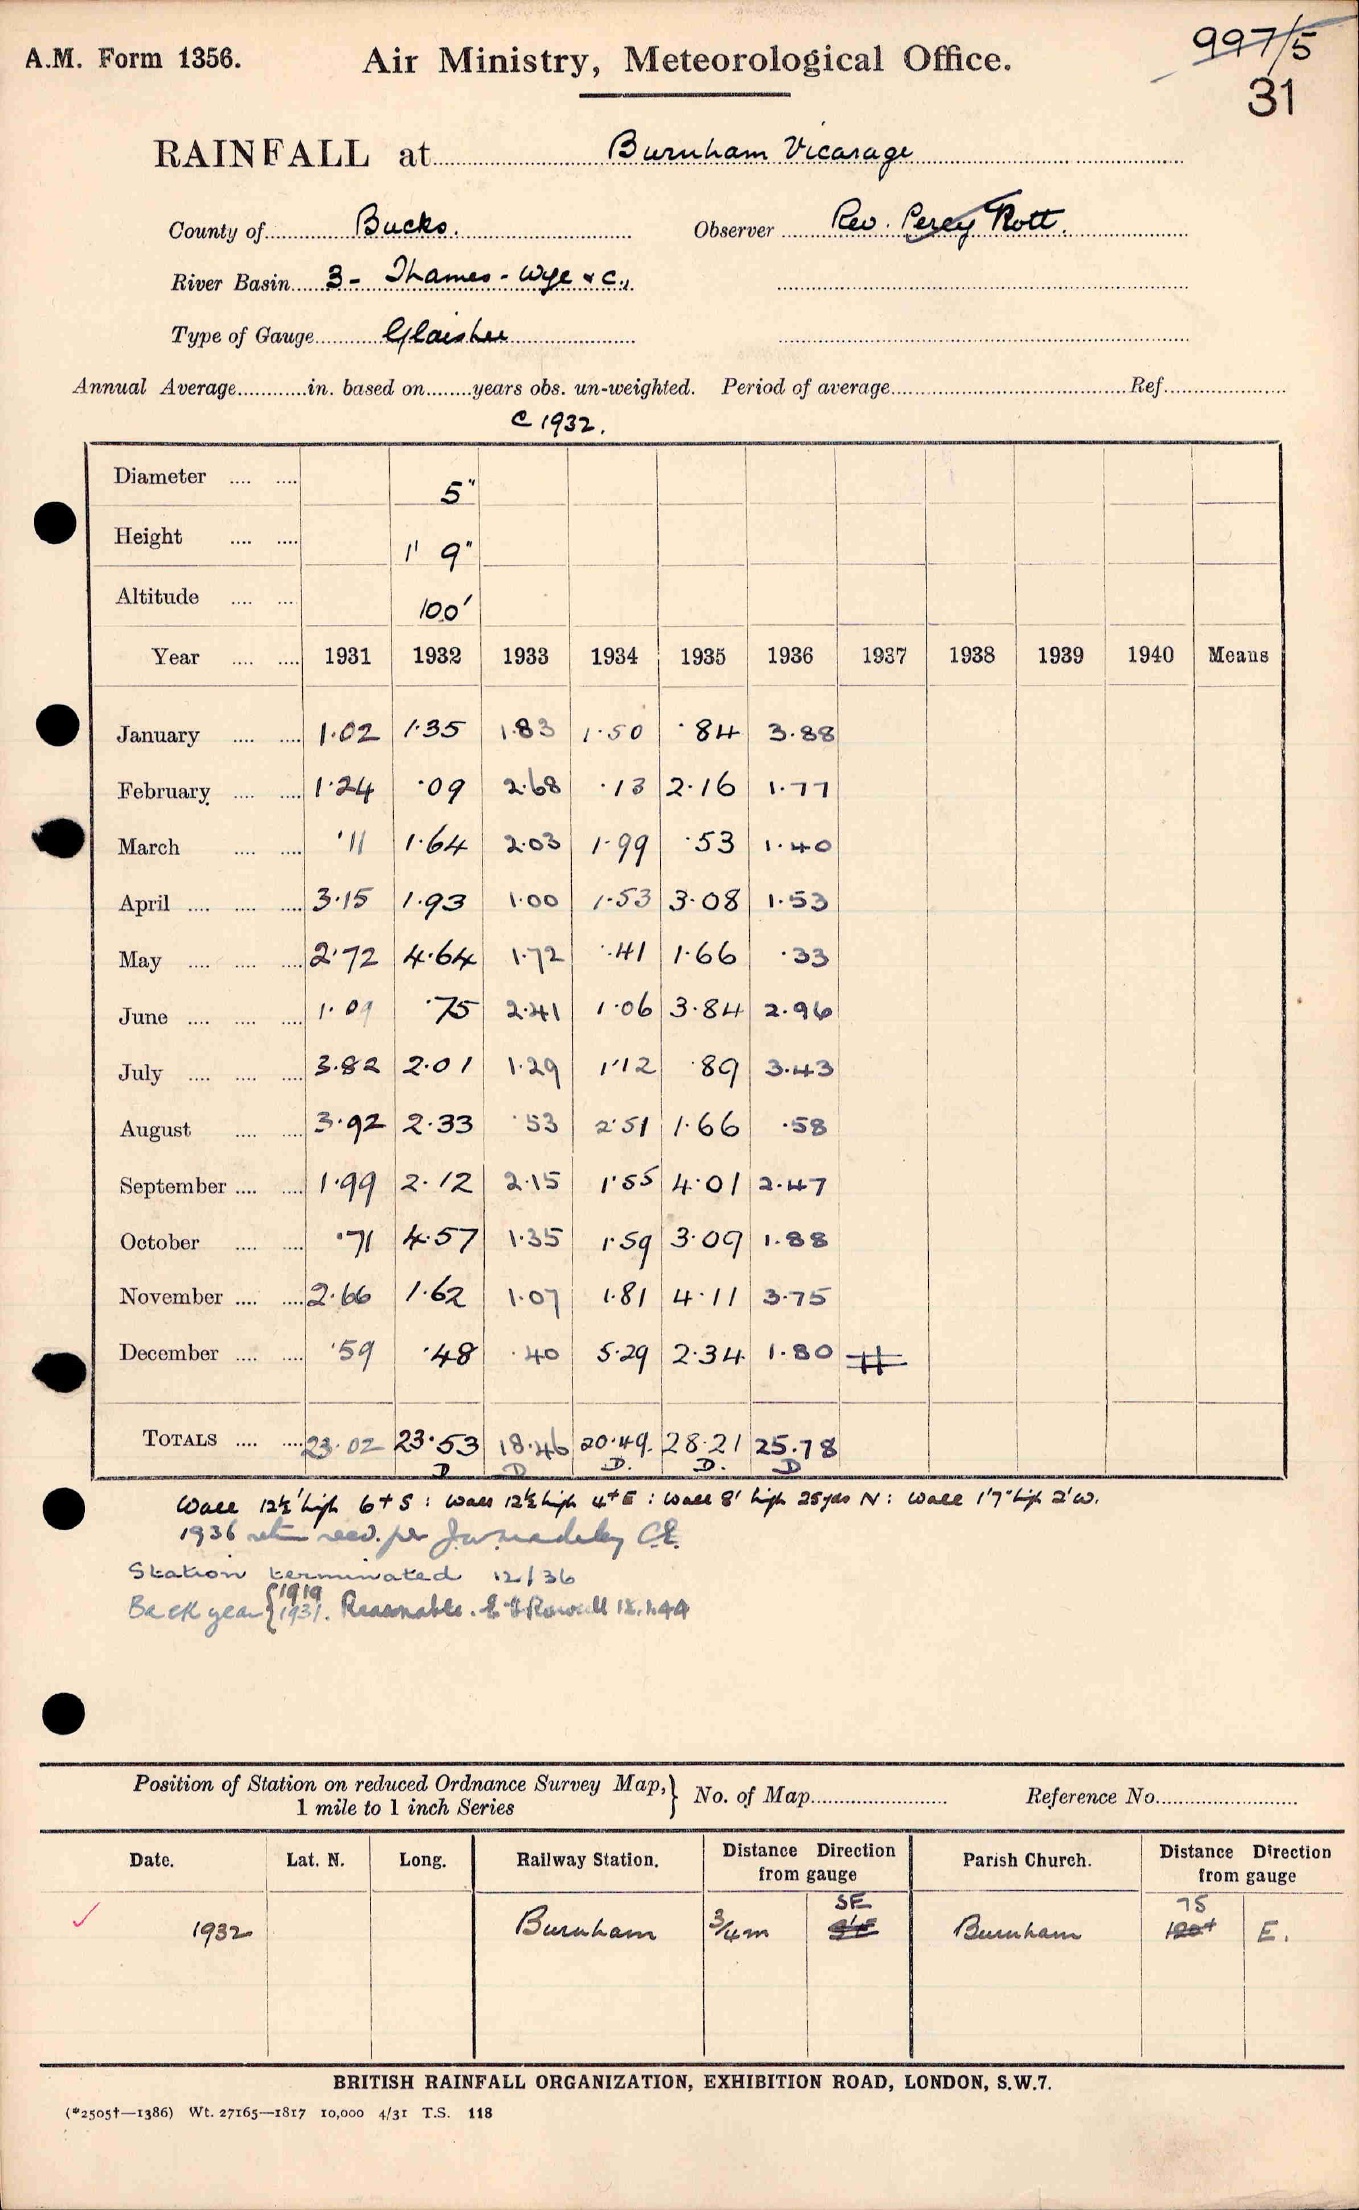 A.M. Form 1356.
Air Ministry, Meteorological Office.
997/5
31
RAINFALL at Burnham Vicarage
County of Bucks. Observer Rev. Percy Nott.
River Basin 3- Thames - Wye & C.,
Type of Gauge Glaisher
Annual Average............in. based on........years obs. un-weighted. Period of average............Ref............
C 1932.
Diameter .... .... 5"
Height .... .... 1' 9"
Altitude .... .... 100'
Year .... .... 1931 1932 1933 1934 1935 1936 1937 1938 1939 1940 Means
January .... .... 1·02 1·35 1·83 1·50 ·84 3·88
February .... .... 1·24 ·09 2·68 ·13 2·16 1·77
March .... .... ·11 1·64 2·03 1·99 ·53 1·40
April .... .... .... 3·15 1·93 1·00 1·53 3·08 1·53
May .... .... .... 2·72 4·64 1·72 ·41 1·66 ·33
June .... .... .... 1·09 ·75 2·41 1·06 3·84 2·96
July .... .... .... 3·82 2·01 1·29 1·12 ·89 3·43
August .... .... 3·92 2·33 ·53 2·51 1·66 ·58
September .... .... 1·99 2·12 2·15 1·55 4·01 2·47
October .... .... ·71 4·57 1·35 1·59 3·09 1·88
November .... .... 2·66 1·62 1·07 1·81 4·11 3·75
December .... .... ·59 ·48 ·40 5·29 2·34 1·80
TOTALS .... .... 23·02 23·53 18·46 20·49. 28·21 25·78
D D D. D. D
Wall 12½' high 6ft S : Wall 12½ high 4ft E : Wall 8' high 25yds N : Wall 1'7" high 2' W.
1936 return recd. per C.E.
Station terminated 12/36
Back year {1919
1931. Reasonable.
Position of Station on reduced Ordnance Survey Map,} No. of Map............ Reference No............
1 mile to 1 inch Series
Date. Lat. N. Long. Railway Station. Distance Direction Parish Church. Distance Direction
from gauge from gauge
SE 75
1932 Burnham ¾m Burnham 120ft E.
BRITISH RAINFALL ORGANIZATION, EXHIBITION ROAD, LONDON, S.W.7.
(*2505†—1386) Wt. 27165—1817 10,000 4/31 T.S. 118